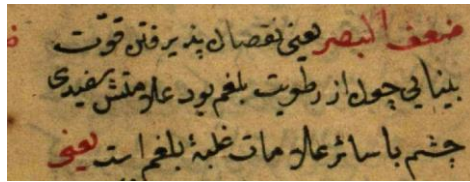 ضعف البصر یعنی نقصان پذیرفتن قوّت
بینایی چون از رطوبت بلغم بود علامتش سفیدی
چشم با سائر علامات غلبۀ بلغم است یعنی